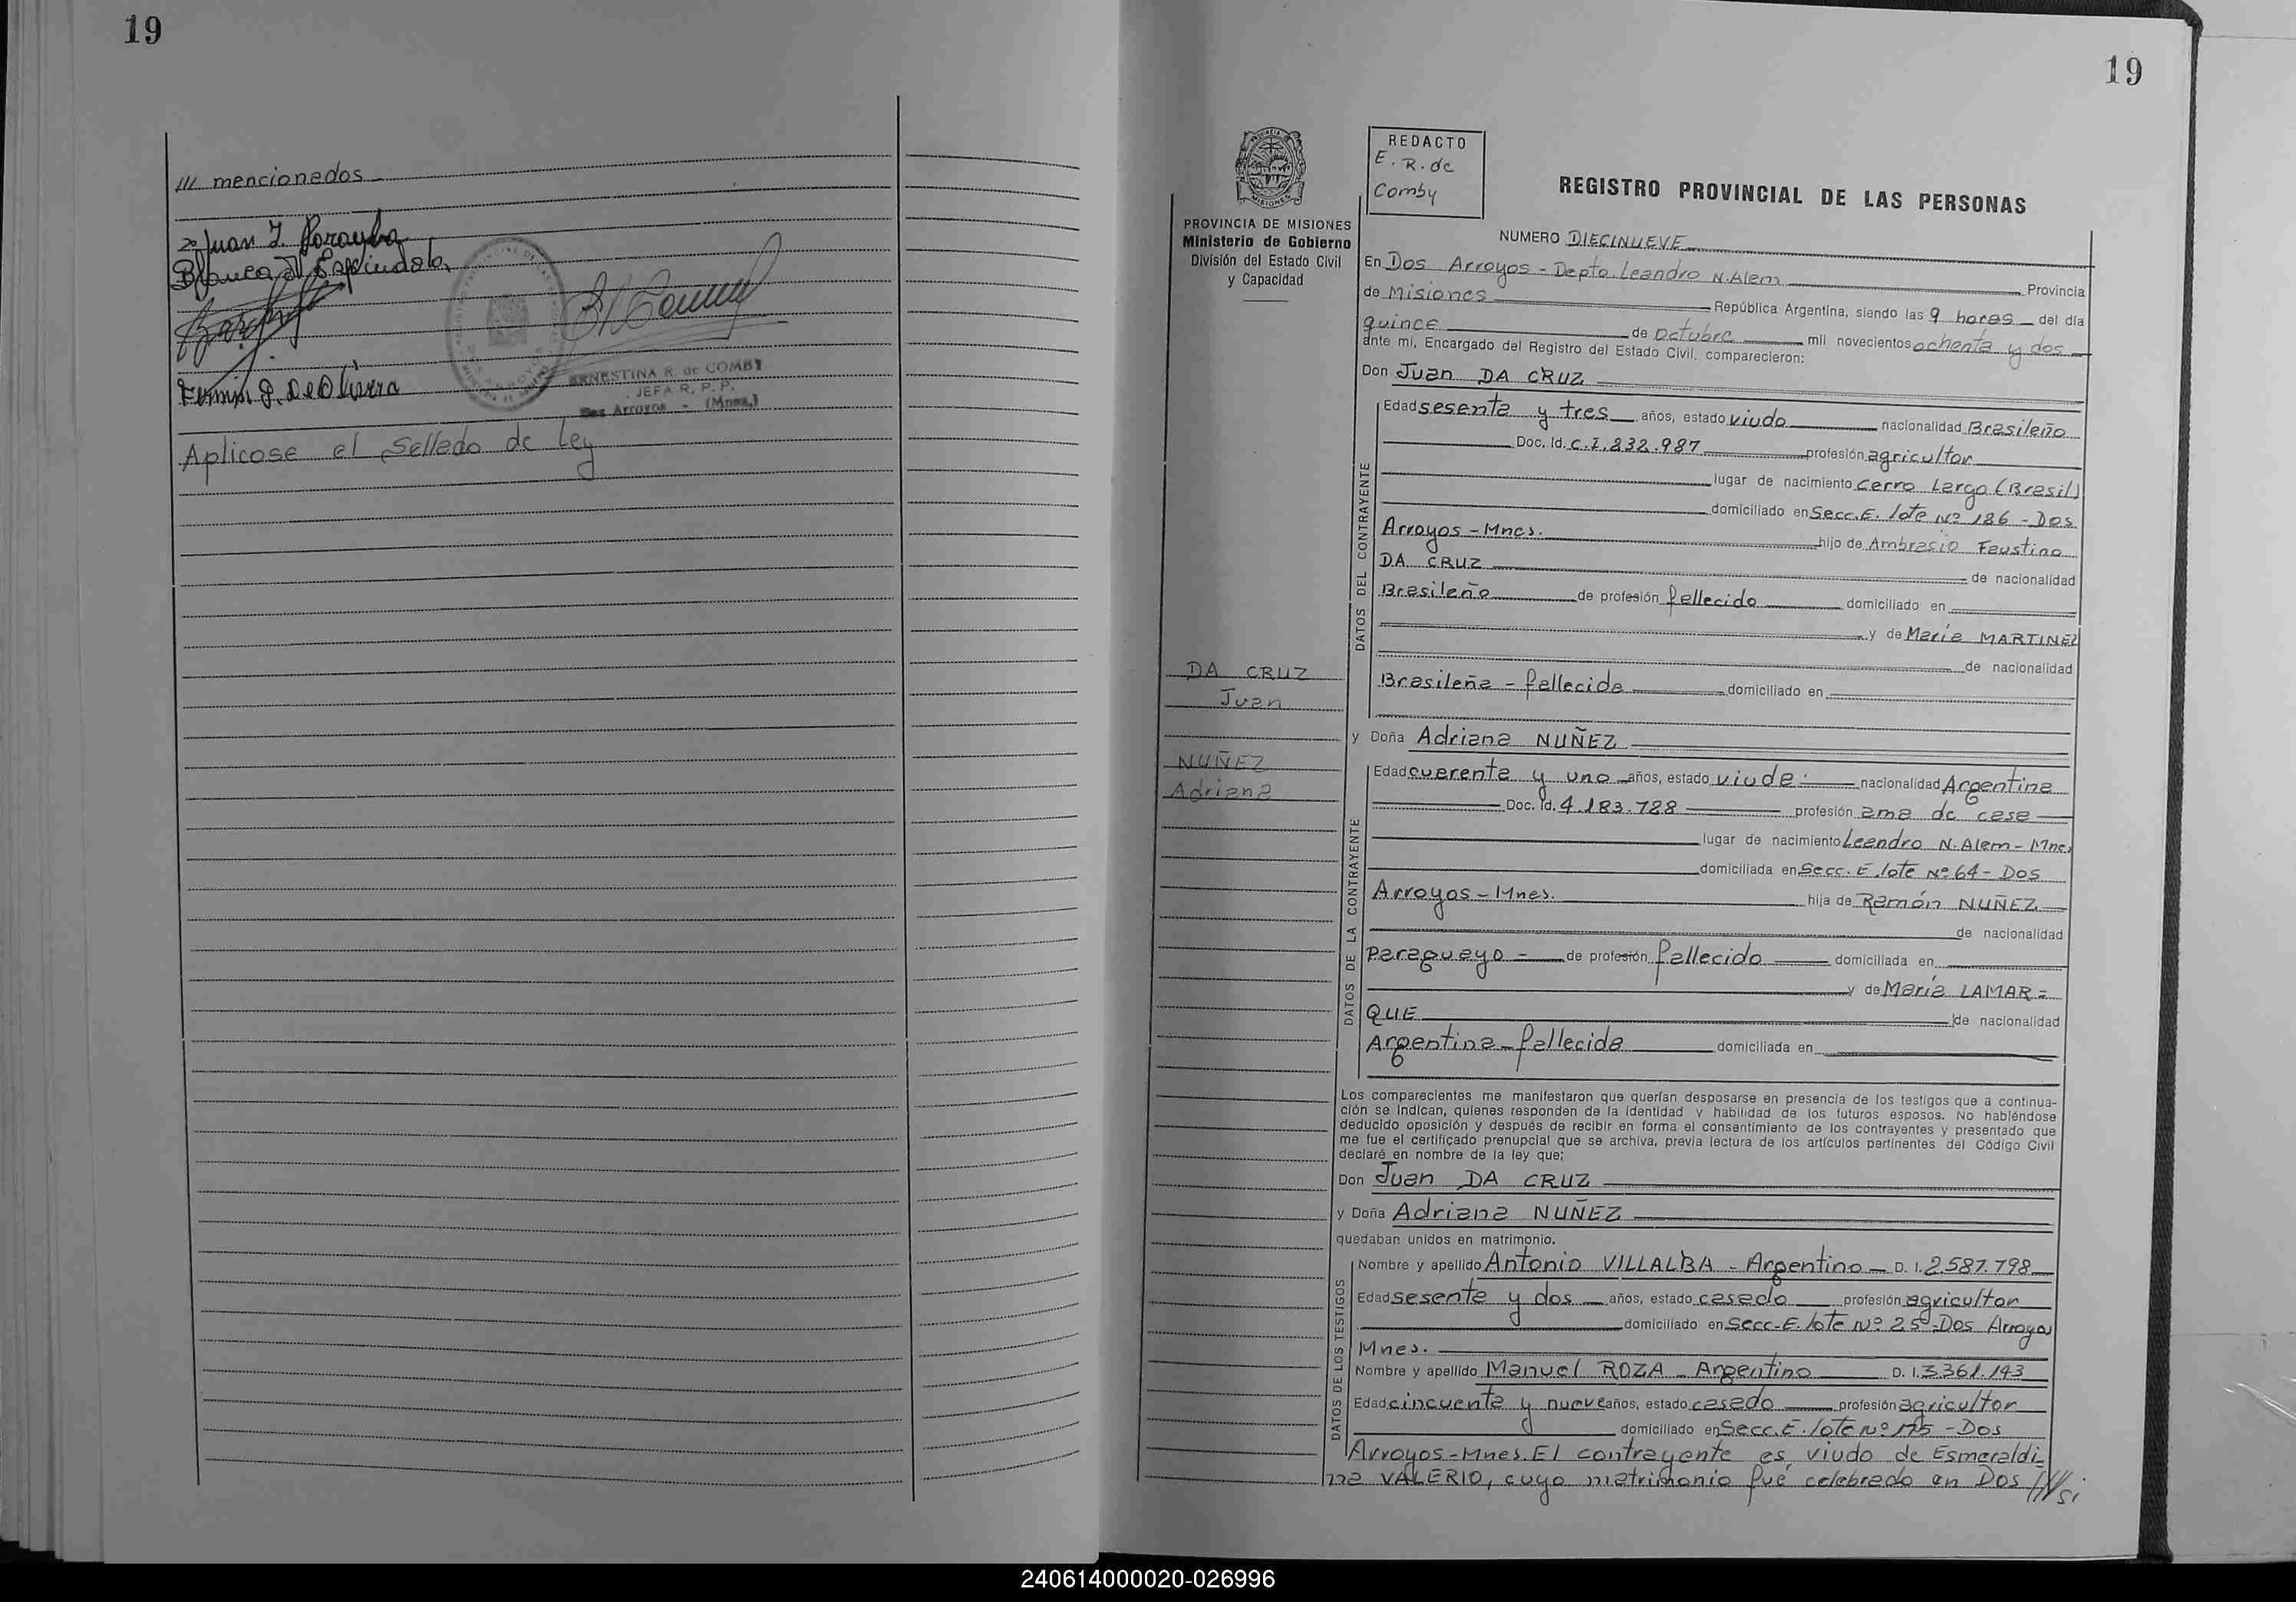 19
/// mencionados
Juan J.
Blanca Espindola
ERNESTINA R. de COMBY
JEFA R. P. P.
Dos Arroyos - (Mnes.)
Fermin J. De Olivera
Aplicose el sellado de ley
19
REDACTO
E. R. de
Comby
REGISTRO PROVINCIAL DE LAS PERSONAS
PROVINCIA DE MISIONES
Ministerio de Gobierno
División del Estado Civil
y Capacidad
NUMERO DIECINUEVE
En Dos Arroyos - Depto. Leandro N. Alem Provincia
de Misiones República Argentina, siendo las 9 horas del día
quince de Octubre mil novecientos ochenta y dos
ante mí, Encargado del Registro del Estado Civil, comparecieron:
Don Juan DA CRUZ
DATOS DEL CONTRAYENTE
Edad sesenta y tres años, estado viudo nacionalidad Brasileño
Doc. Id. C.I. 232.987 profesión agricultor
lugar de nacimiento Cerro Largo (Brasil)
domiciliado en Secc. E. lote Nº 186 - Dos
Arroyos - Mnes. hijo de Ambrasio Faustino
DA CRUZ de nacionalidad
Brasileño de profesión fallecido domiciliado en
y de María MARTINEZ
de nacionalidad
Brasileña - fallecida domiciliado en
DA CRUZ
Juan
NUÑEZ
Adriana
y Doña Adriana NUÑEZ
DATOS DE LA CONTRAYENTE
Edad cuarenta y uno años, estado viuda nacionalidad Argentina
Doc. Id. 4.183.788 profesión ama de casa
lugar de nacimiento Leandro N. Alem - Mnes
domiciliada en Secc. E. lote Nº 64 - Dos
Arroyos - Mnes. hija de Ramón NUÑEZ
de nacionalidad
Paraguayo - de profesión fallecido domiciliada en
y de María LAMAR=
QUE de nacionalidad
Argentina - fallecida domiciliada en
Los comparecientes me manifestaron que querían desposarse en presencia de los testigos que a continua-
ción se indican, quienes responden de la identidad y habilidad de los futuros esposos. No habiéndose
deducido oposición y después de recibir en forma el consentimiento de los contrayentes y presentado que
me fue el certificado prenupcial que se archiva, previa lectura de los artículos pertinentes del Código Civil
declaré en nombre de la ley que:
Don Juan DA CRUZ
y Doña Adriana NUÑEZ
quedaban unidos en matrimonio.
DATOS DE LOS TESTIGOS
Nombre y apellido Antonio VILLALBA - Argentino - D. I. 2.587.798
Edad sesenta y dos años, estado casado profesión agricultor
domiciliado en Secc. E. lote Nº 25 - Dos Arroyos
Mnes.
Nombre y apellido Manuel ROZA - Argentino D. I. 3.361.143
Edad cincuenta y nueve años, estado casado profesión agricultor
domiciliado en Secc. E. lote Nº 175 - Dos
Arroyos - Mnes. El contrayente es viudo de Esmeraldi-
na VALERIO, cuyo matrimonio fué celebrado en Dos ///si
240614000020-026996